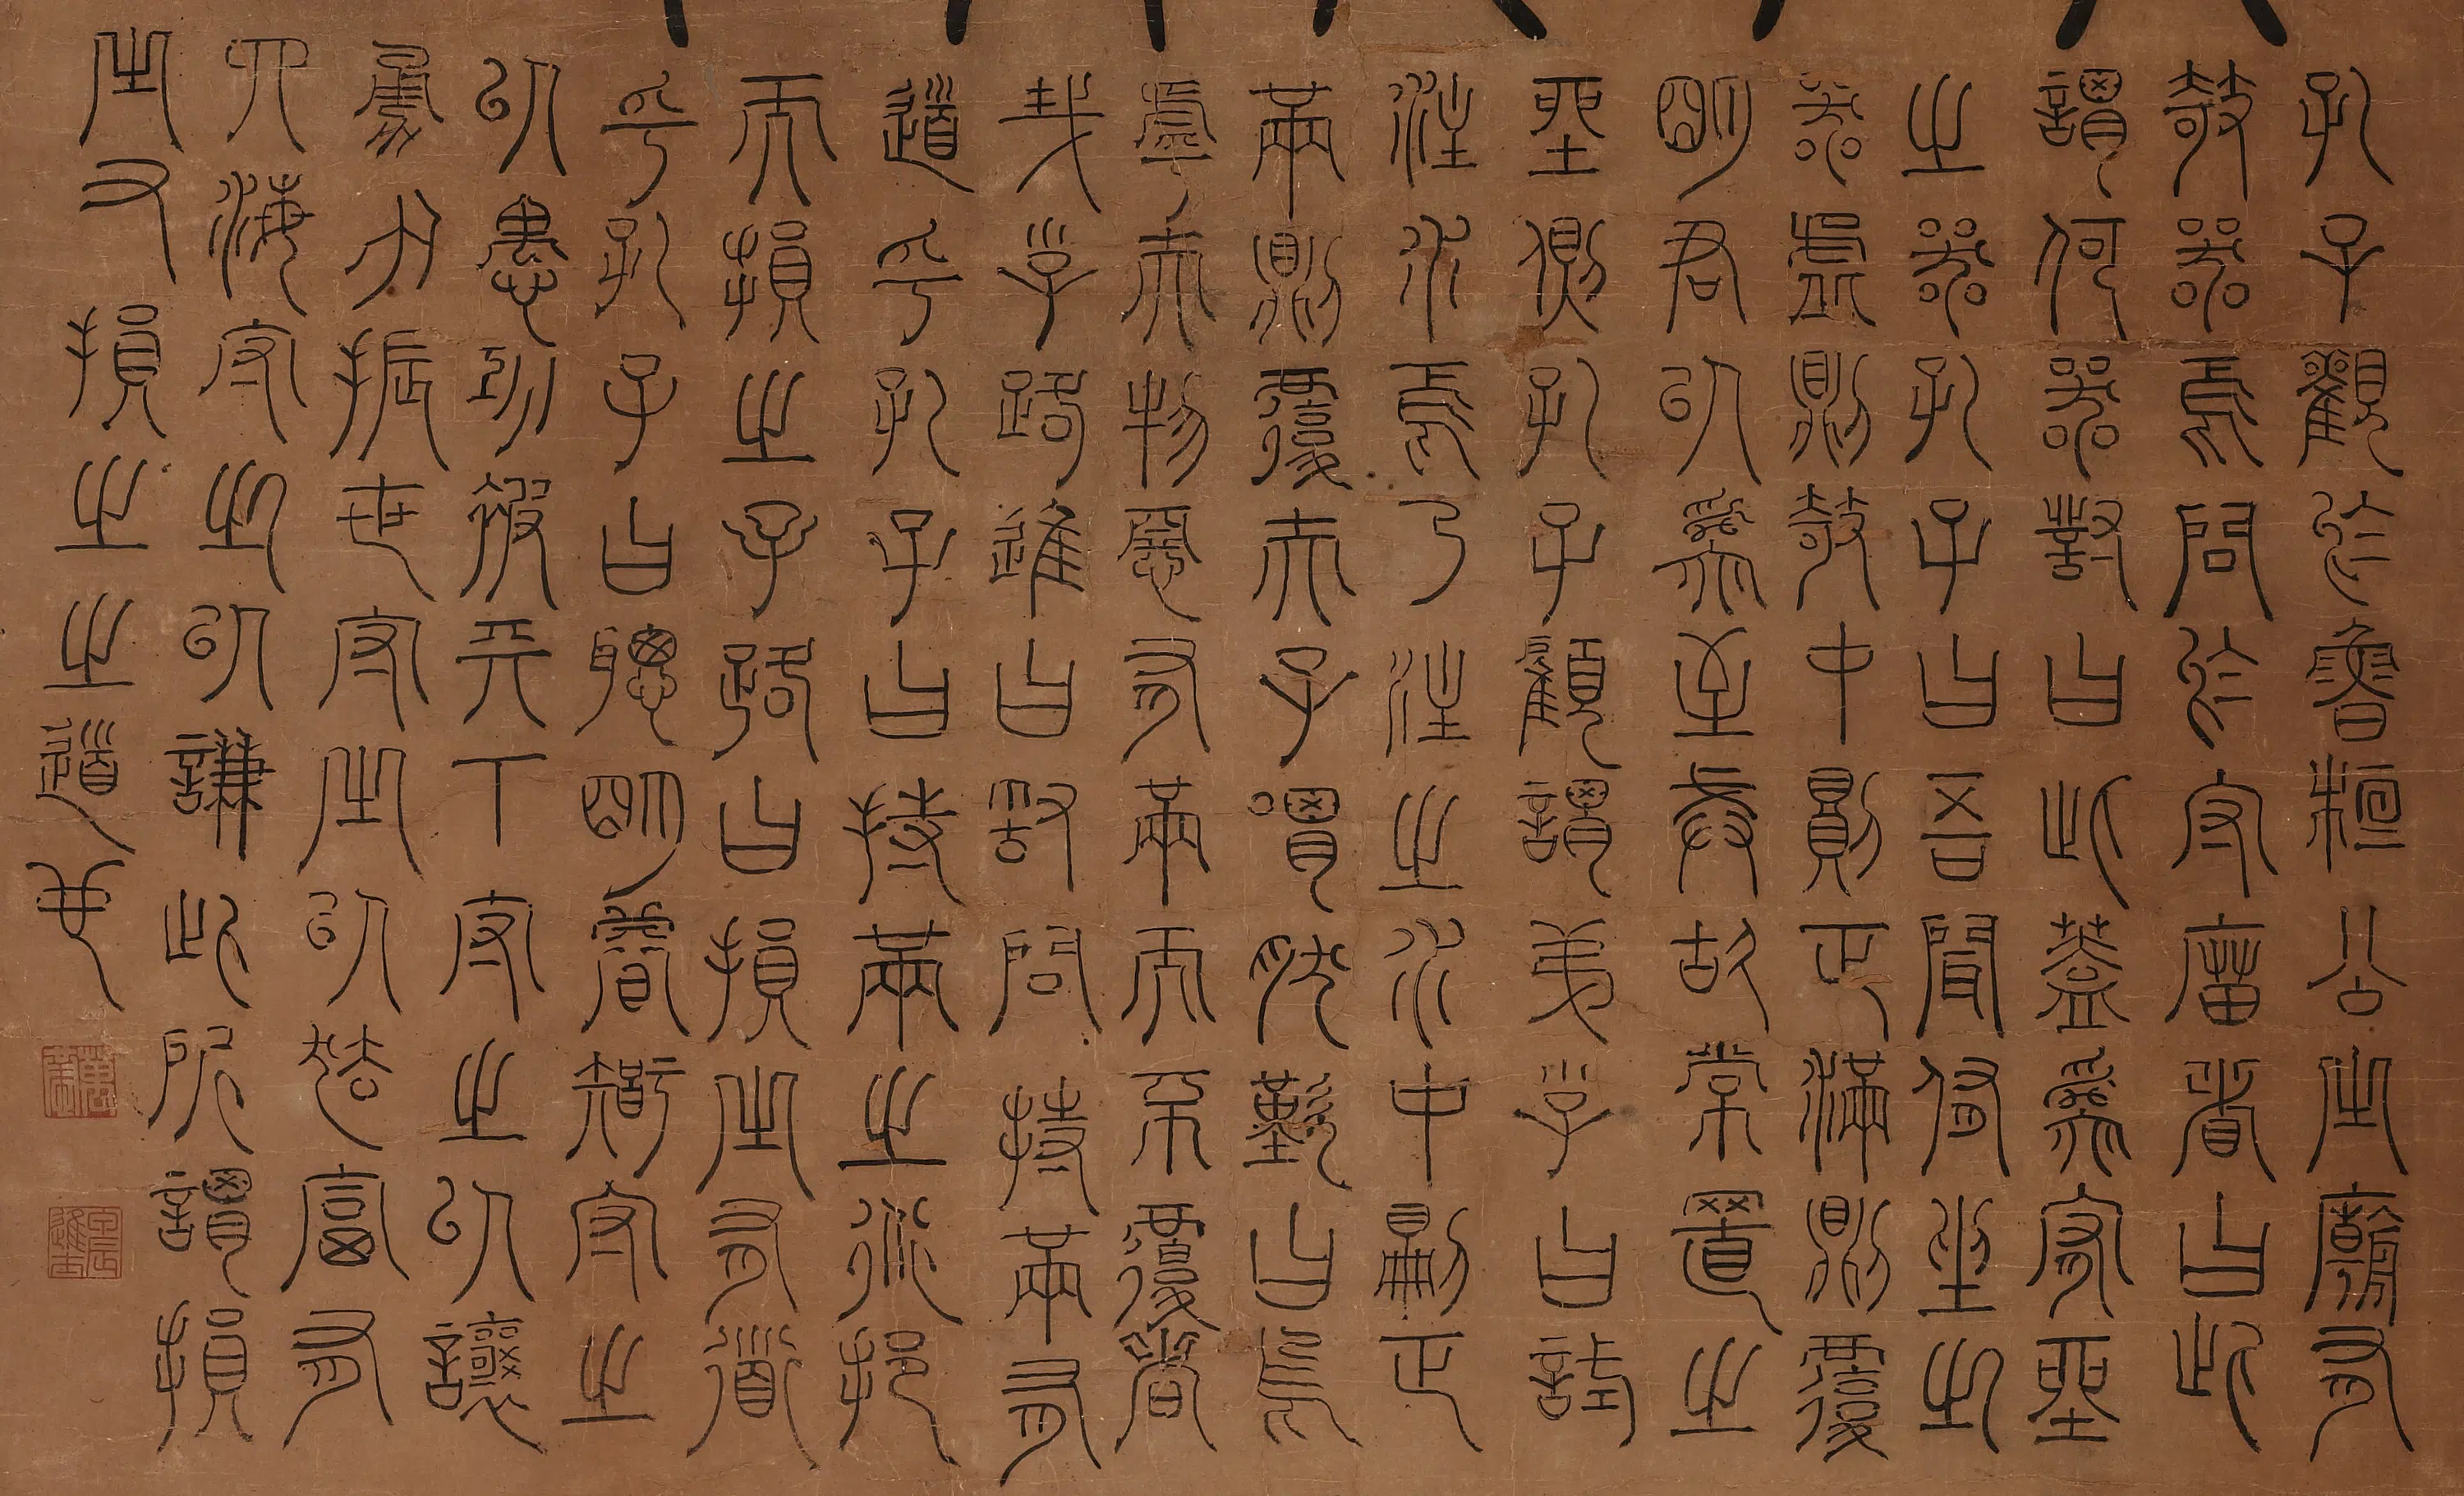 孔子觀於魯桓公之廟有
欹器焉問於守廟者曰此
謂何器對曰此蓋為宥坐
之器孔子曰吾聞侑坐之
器虛則欹中則正滿則覆
明君以為至誡故常置之
坐側孔子顧謂弟子曰試
注水焉乃注之水中則正
滿則覆夫子喟然歎曰烏
虖夫物惡有滿而不覆者
哉子路進曰敢問持滿有
道乎孔子曰持滿之術挹
而損之子路曰損之有道
乎孔子曰聰明睿智守之
以愚功被天下守之以讓
勇力振世守之以怯富有
四海守之以謙此所謂損
之又損之之道也